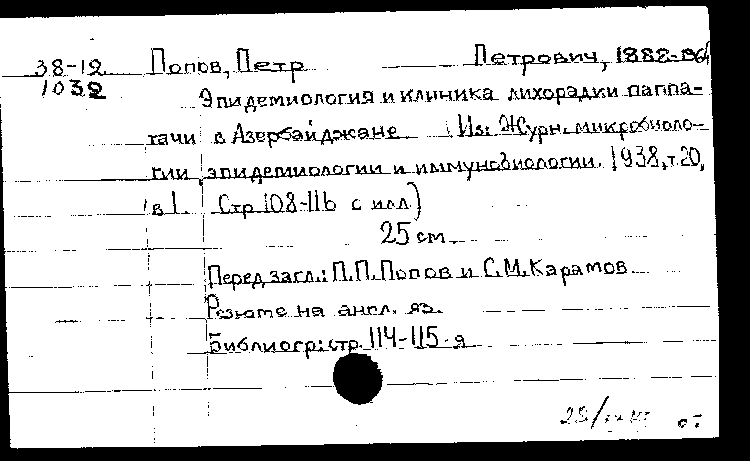 38-12 Попов, Петр Петрович, 1882-964
1032
Эпидемиология и клиника лихорадки паппа-
тачи в Азербайджане. (Из: Журн. микробиоло-
гии, эпидемиологии и иммунобиологии. 1938, т. 20,
в 1. Стр 108-116 с илл)
25 см.
Перед загл.: П.П. Попов и С.М. Карамов.
Резюме на англ. яз.
Библиогр: стр. 114-115-я